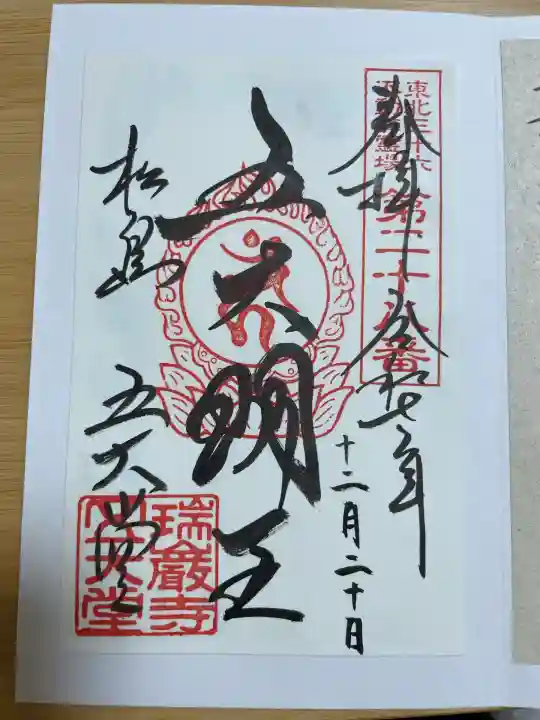 東北三十六
不動尊霊場
第二十八番
奉拝
令和七年
十二月二十日
五大明王
松島
五大堂
瑞巖寺
五大堂